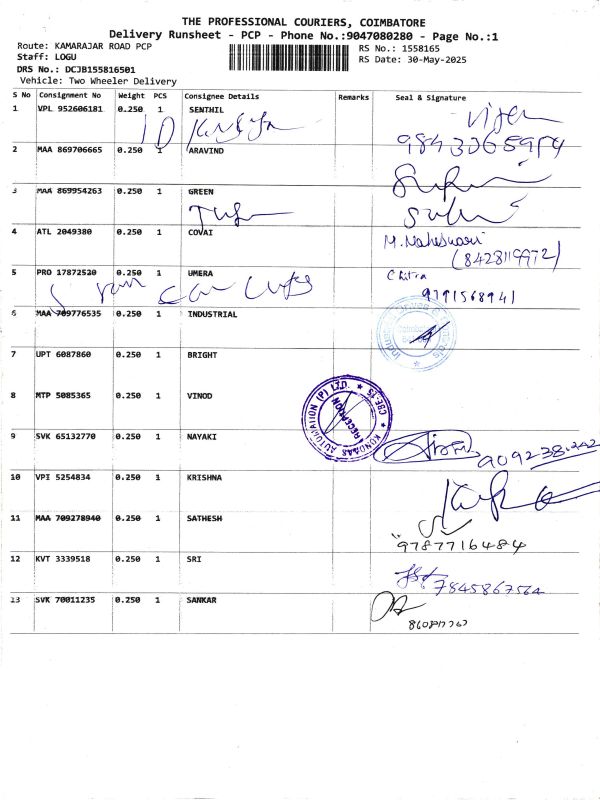 THE PROFESSIONAL COURIERS, COIMBATORE
Delivery Runsheet - PCP - Phone No.:9047080280 - Page No.:1
Route: KAMARAJAR ROAD PCP
Staff: LOGU
DRS No.: DCJB155816501
Vehicle: Two Wheeler Delivery
RS No.: 1558165
RS Date: 30-May-2025
S No Consignment No Weight PCS Consignee Details Remarks Seal & Signature
1 VPL 952606181 0.250 1 SENTHIL
2 MAA 869706665 0.250 1 ARAVIND
3 MAA 869954263 0.250 1 GREEN
4 ATL 2049380 0.250 1 COVAI M. Maheswari
(8428119972)
5 PRO 17872520 0.250 1 UMERA Chitra
9791568941
6 MAA 709776535 0.250 1 INDUSTRIAL
7 UPT 6087860 0.250 1 BRIGHT
8 MTP 5085365 0.250 1 VINOD
KONDAAS AUTOMATION (P) LTD. ★ CBE.15 ★
RECEPTION
9 SVK 65132770 0.250 1 NAYAKI
10 VPI 5254834 0.250 1 KRISHNA
11 MAA 709278940 0.250 1 SATHESH
9787716484
12 KVT 3339518 0.250 1 SRI
7845867564
13 SVK 70011235 0.250 1 SANKAR